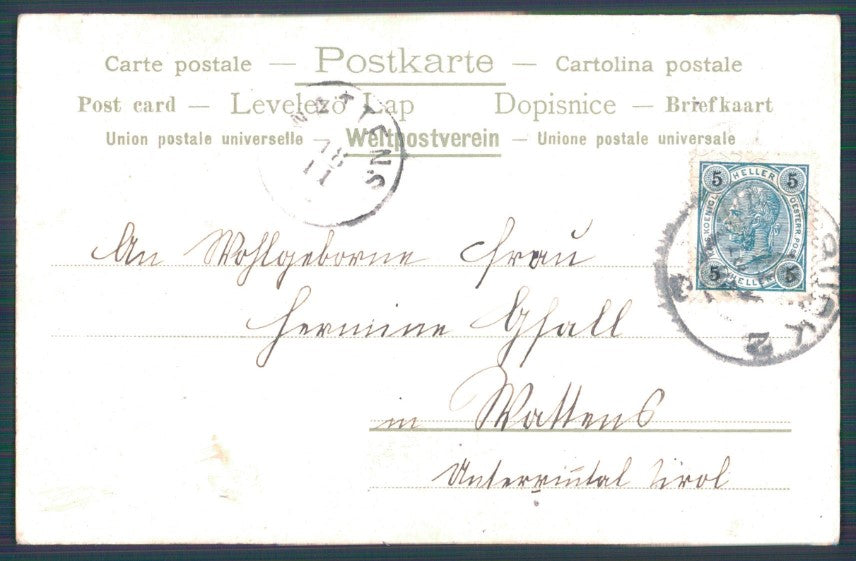 Carte postale — Postkarte — Cartolina postale
Post card — Levelező Lap Dopisnice — Briefkaart
Union postale universelle — Weltpostverein — Unione postale universale
WATTENS
18
11
5 HELLER 5
KOENIGL. OESTERR. POST
5 HELLER 5
2
An Wohlgeborne Frau
Hermine Gfall
in Wattens
Unterinntal Tirol